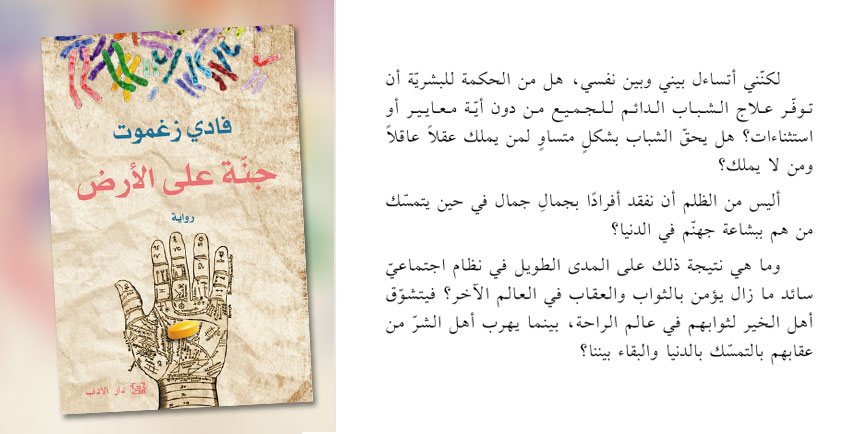 فادي زغموت
جنّة على الأرض
رواية
دار الآداب
لكنّني أتساءل بيني وبين نفسي، هل من الحكمة للبشريّة أن
توفّر علاج الشباب الدائم للجميع من دون أيّة معايير أو
استثناءات؟ هل يحقّ الشباب بشكلٍ متساوٍ لمن يملك عقلاً عاقلاً
ومن لا يملك؟
أليس من الظلم أن نفقد أفرادًا بجمالِ جمال في حين يتمسّك
من هم ببشاعة جهنّم في الدنيا؟
وما هي نتيجة ذلك على المدى الطويل في نظام اجتماعيّ
سائد ما زال يؤمن بالثواب والعقاب في العالم الآخر؟ فيتشوّق
أهل الخير لثوابهم في عالم الراحة، بينما يهرب أهل الشرّ من
عقابهم بالتمسّك بالدنيا والبقاء بيننا؟